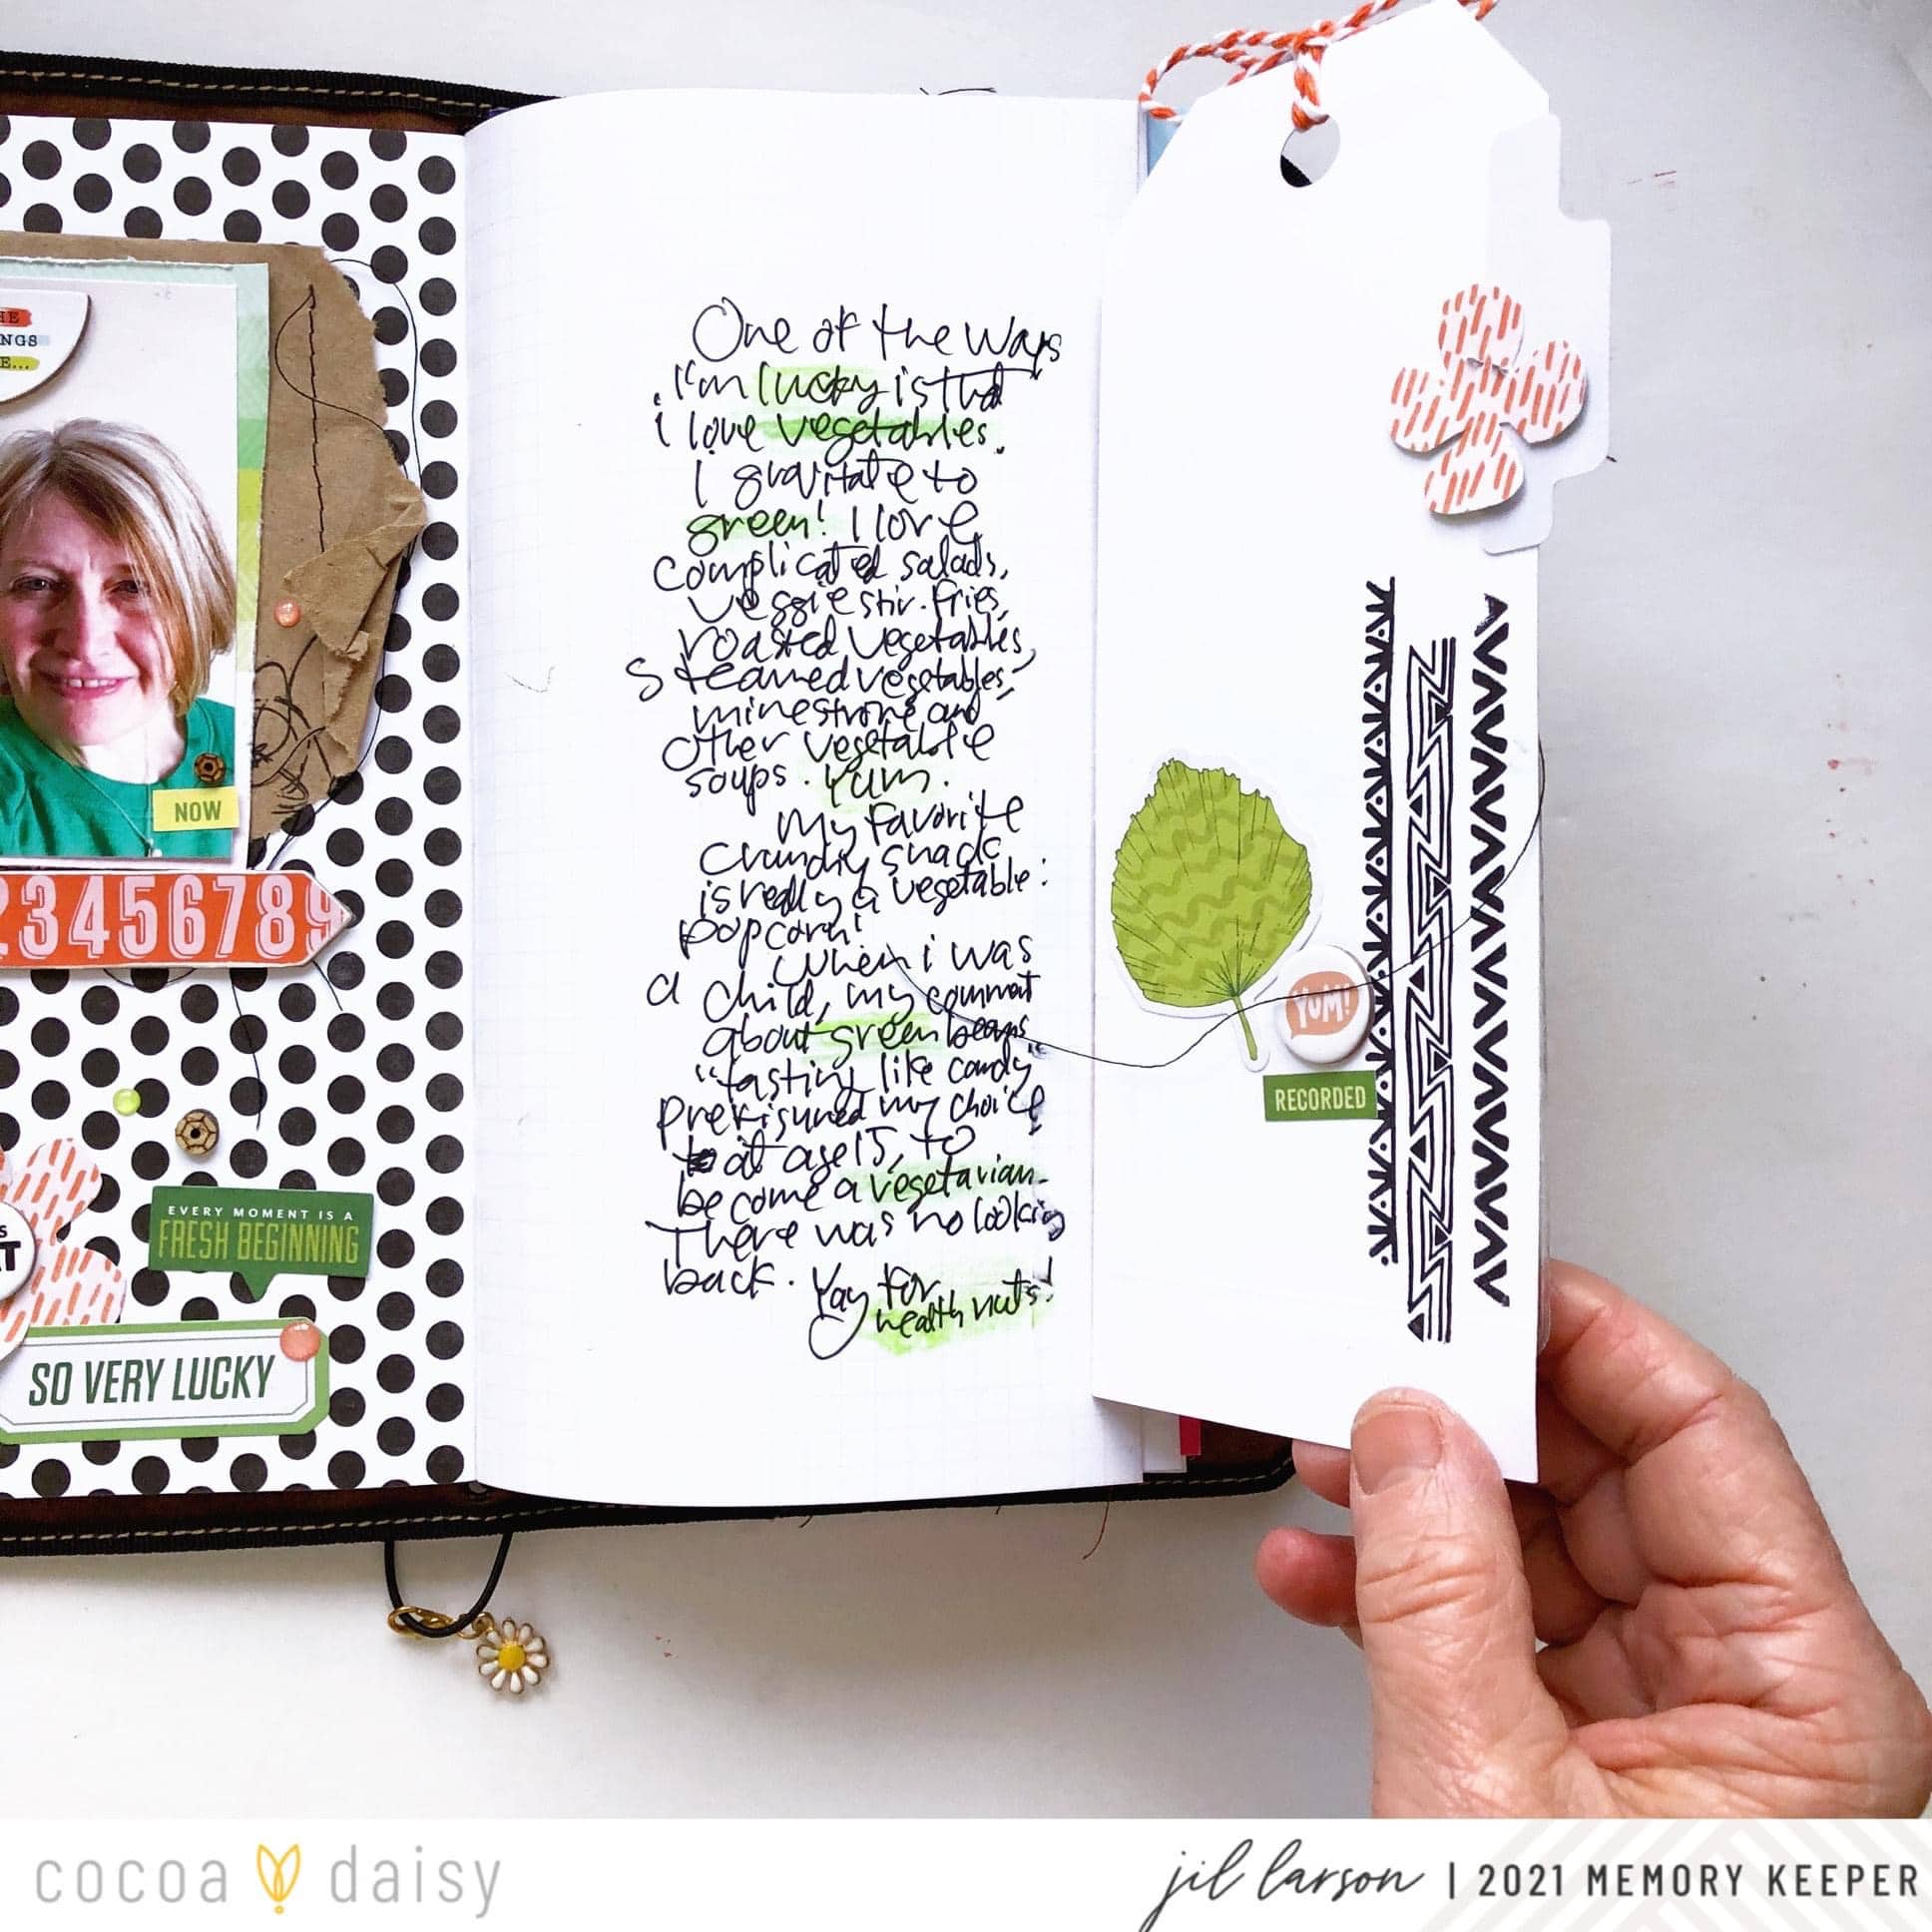 HE
NGS
E...
NOW
23456789
EVERY MOMENT IS A
FRESH BEGINNING
S
AT
SO VERY LUCKY
One of the ways
I'm lucky is that
i love vegetables.
I gravitate to
green! I love
complicated salads,
veggie stir-fries,
roasted vegetables,
steamed vegetables,
minestrone and
other vegetable
soups. Yum.
My favorite
crunchy snack
is really a vegetable:
popcorn!
When i was
a child, my comment
about green beans
"tasting like candy"
prefigured my choice
at age 15, to
become a vegetarian.
There was no looking
back. Yay for
health nuts!
YUM!
RECORDED
cocoa daisy
jil larson | 2021 MEMORY KEEPER